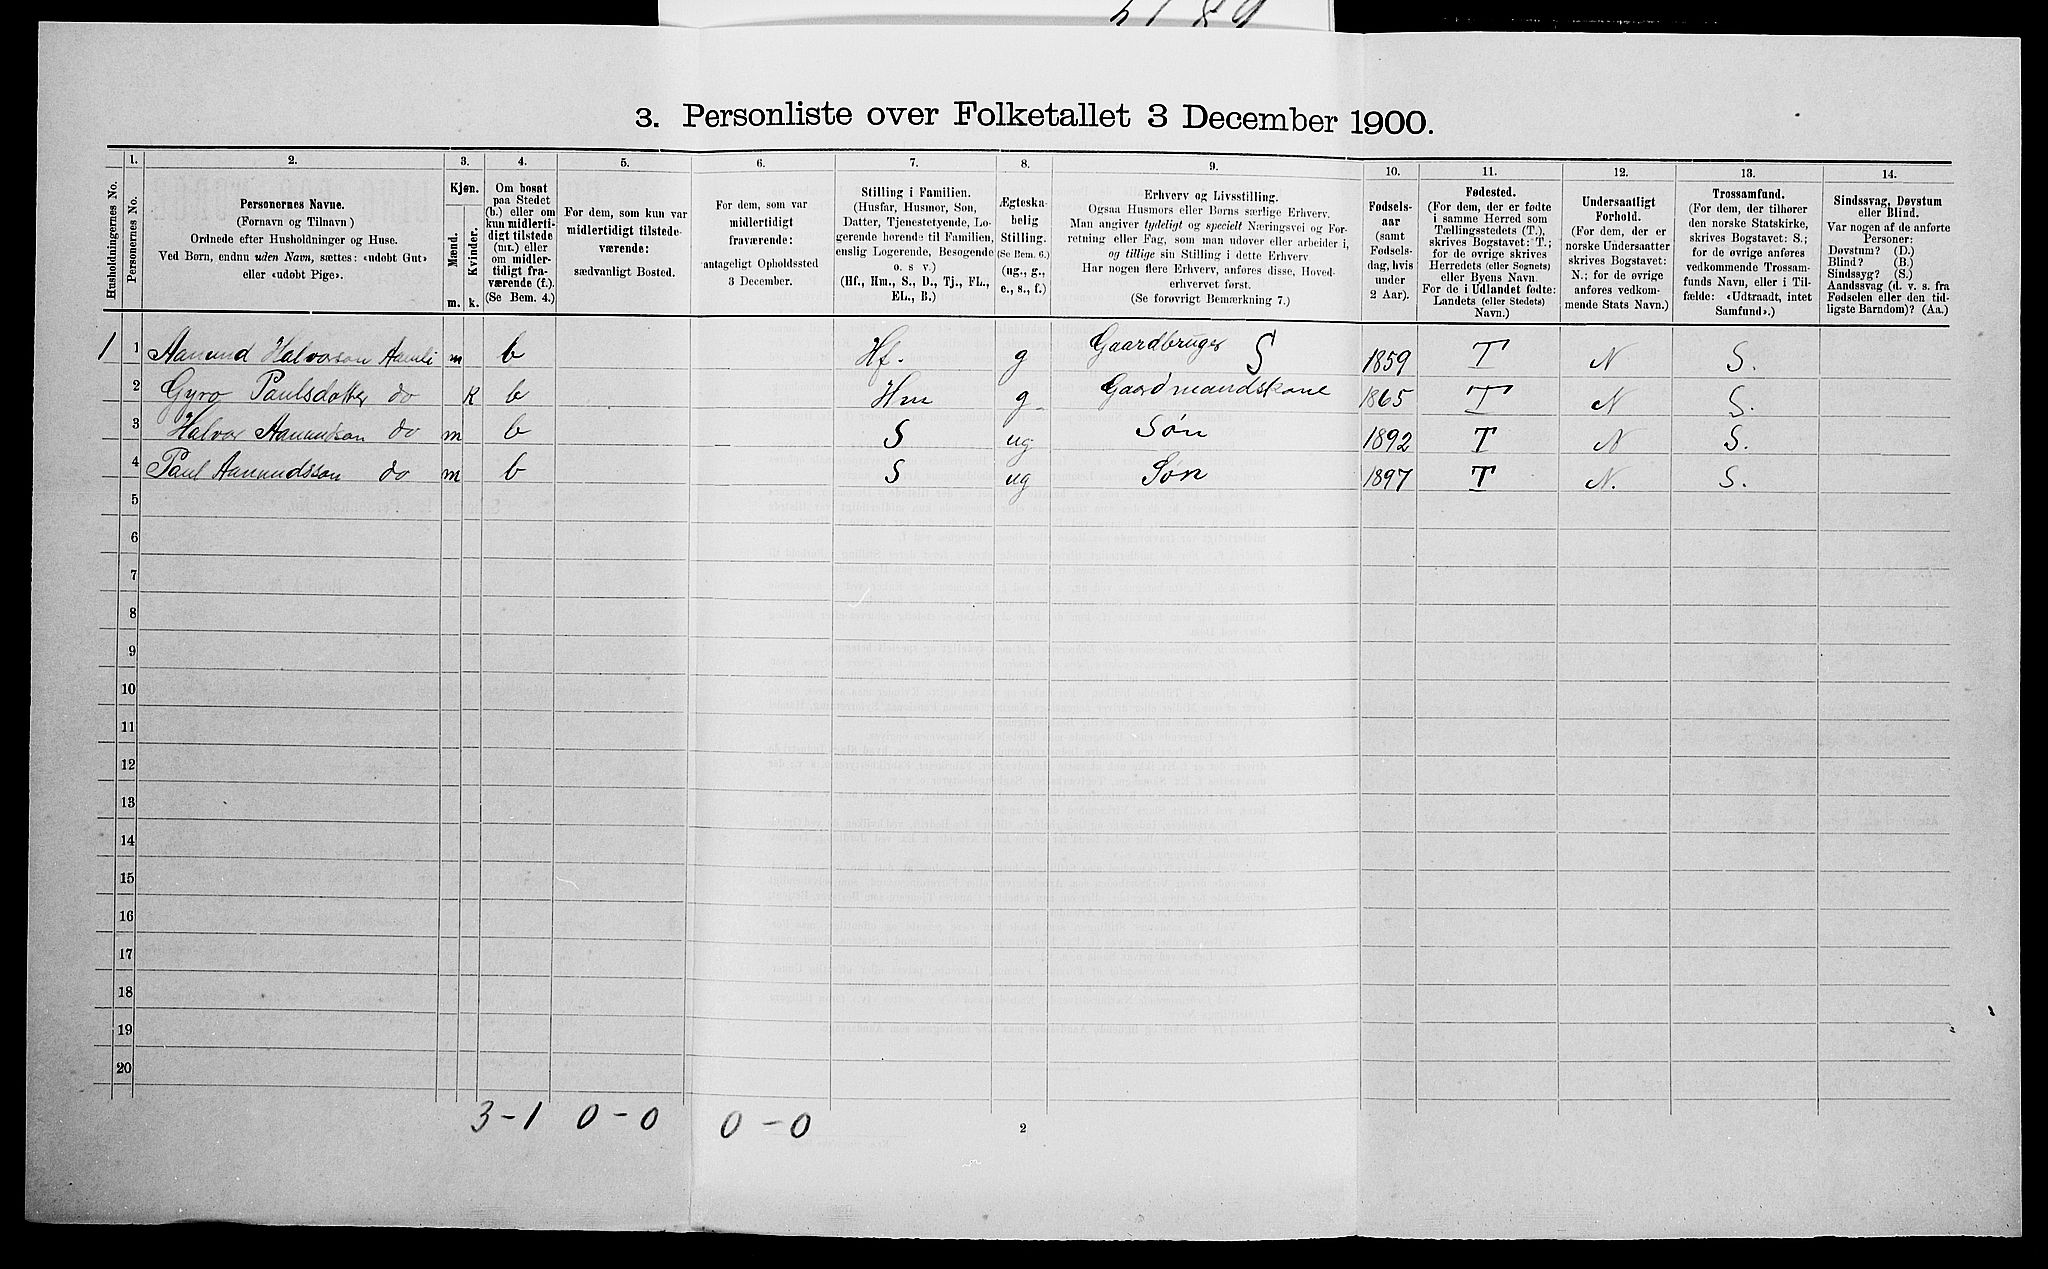 3. Personliste over Folketallet 3 December 1900.
Husholdningernes No.
1.
Personernes No.
2.
Personernes Navne.
(Fornavn og Tilnavn)
Ordnede efter Husholdninger og Huse.
Ved Børn, endnu uden Navn, sættes: «udobt Gut»
eller «udobt Pige».
3.
Kjøn.
Mænd.
Kvinder.
m.
k.
4.
Om bosat
paa Stedet
(b.) eller om
kun midlerti-
digt tilstede
(mt.) eller
om midler-
tidigt fra-
værende (f.).
(Se Bem. 4.)
5.
For dem, som kun var
midlertidigt tilstede-
værende:
sædvanligt Bosted.
6.
For dem, som var
midlertidigt
fraværende:
antageligt Opholdssted
3 December.
7.
Stilling i Familien.
(Husfar, Husmor, Søn,
Datter, Tjenestetyende, Lo-
gerende hørende til Familien,
enslig Logerende, Besøgende
o. s v.)
(Hf., Hm., S., D., Tj., FL.,
EL., B.)
8.
Ægteska-
belig
Stilling.
(Se Bem. 6.)
(ug., g.,
e., s., f.)
9.
Erhverv og Livsstilling.
Ogsaa Husmors eller Børns særlige Erhverv.
Man angiver tydeligt og specielt Næringsvei og For-
retning eller Fag, som man udøver eller arbeider i,
og tillige sin Stilling i dette Erhverv
Har nogen flere Erhverv, anføres disse, Hoved-
erhvervet først.
(Se forøvrigt Bemærkning 7.)
10.
Fødsels-
aar
(samt
Fødsels-
dag, hvis
under
2 Aar).
11.
Fødested.
(For dem, der er fødte
i samme Herred som
Tællingsstedets (T.),
skrives Bogstavet: T.;
for de øvrige skrives
Herredets (eller Sognets)
eller Byens Navn.
For de i Udlandet fødte:
Landets (eller Stedets)
Navn.)
12.
Undersaatligt
Forhold.
(For dem, der er
norske Undersaatter
skrives Bogstavet:
N.; for de øvrige
anføres vedkom-
mende Stats Navn.)
13.
Trossamfund.
(For dem, der tilhører
den norske Statskirke,
skrives Bogstavet: S.;
for de øvrige anføres
vedkommende Trossam-
funds Navn, eller i Til-
fælde: «Udtraadt, intet
Samfund».)
14.
Sindssvag, Døvstum
eller Blind.
Var nogen af de anførte
Personer:
Døvstum? (D.)
Blind? (B.)
Sindssyg? (S.)
Aandssvag (d. v. s. fra
Fødselen eller den tid-
ligste Barndom)? (Aa.)
1 1 Aanund Halvorson Aamli m b Hf. g Gaardbruger S 1859 T N S.
2 Gyro Paulsdatter do K b Hm g Gaardmandskone 1865 T N S.
3 Halvor Aanundson do m b S ug Søn 1892 T N S.
4 Paul Aanundsson do m b S ug Søn 1897 T N. S.
5
6
7
8
9
10
11
12
13
14
15
16
17
18
19
20
3-1 0-0 0-0
2